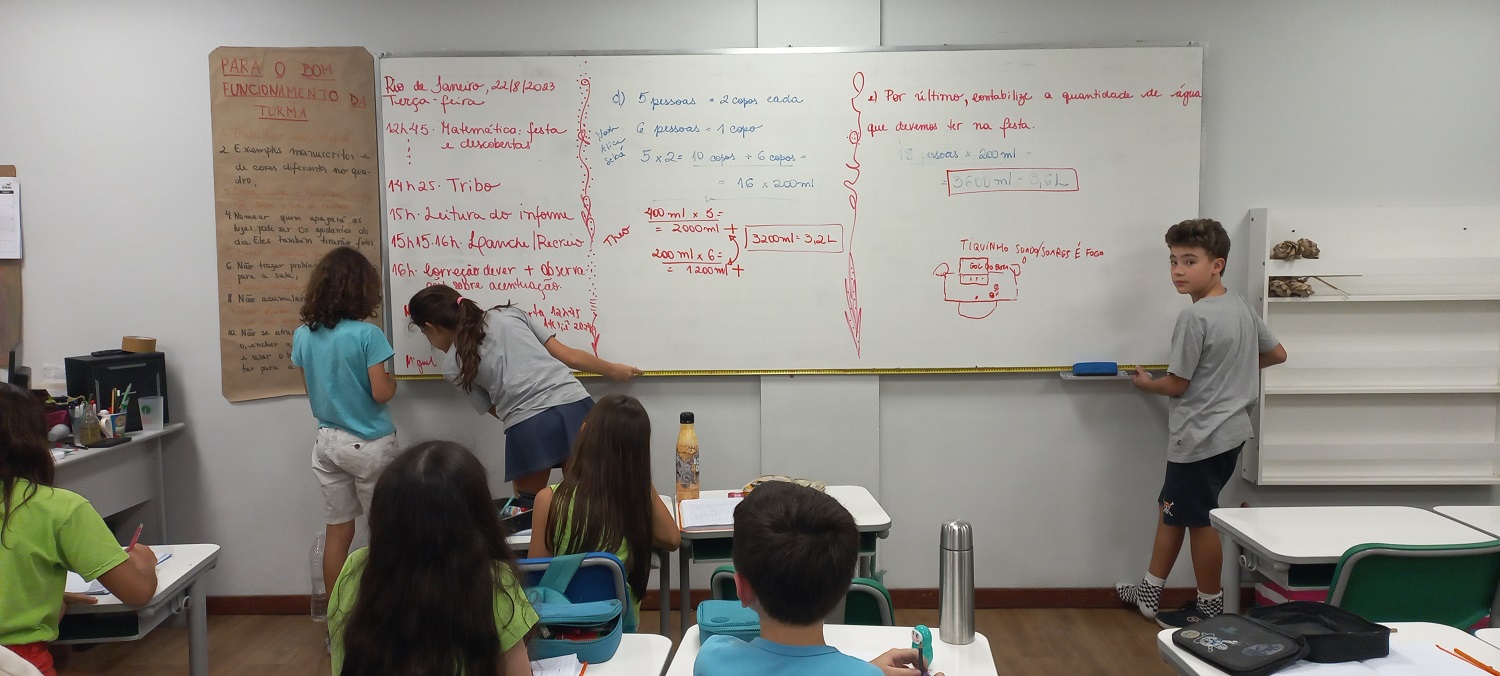 PARA O BOM
FUNCIONAMENTO DA
TURMA
2. Exemplos manuscritos e
de cores diferentes no qua-
dro.
4. Nomear quem apagará as
luzes pode ser os ajudantes do
dia. Eles também tirarão fotos
6. Não trazer
para a sala;
8. Não acumular
10. Não se
Rio de Janeiro, 22/8/2023
Terça-feira
12h45. Matemática: festa
e descobertas
14h25. Tribo
15h. Leitura do informe
15h15-16h. Lanche/Recreio
16h. Correção dever + Observa
sobre acentuação.
12h45
Miguel
d) 5 pessoas = 2 copos cada
6 pessoas = 1 copo
5 x 2 = 10 copos + 6 copos =
= 16 x 200ml
Theo
400 ml x 5 =
= 2000ml +
200 ml x 6 =
= 1200ml +
3200ml = 3,2L
e) Por último, contabilize a quantidade de água
que devemos ter na festa.
18 pessoas x 200ml =
= 3600ml = 3,6L
TIQUINHO SOARES É FOGO